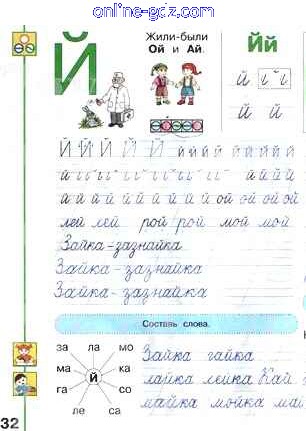 online-gdz.com
Й
Жили-были
Ой и Ай.
Йй
й
й й
Й Й Й Й Й й й й й й й й й й
й
й й й й й й й й й й ой ой ой ой
лей лей рой рой мой мой
Зайка-зазнайка
Зайка-зазнайка
Зайка-зазнайка
Составь слова.
за ла мо
ма й ка
га со
ле са
Зайка гайка
лайка лейка Кай
майка мойка май
32